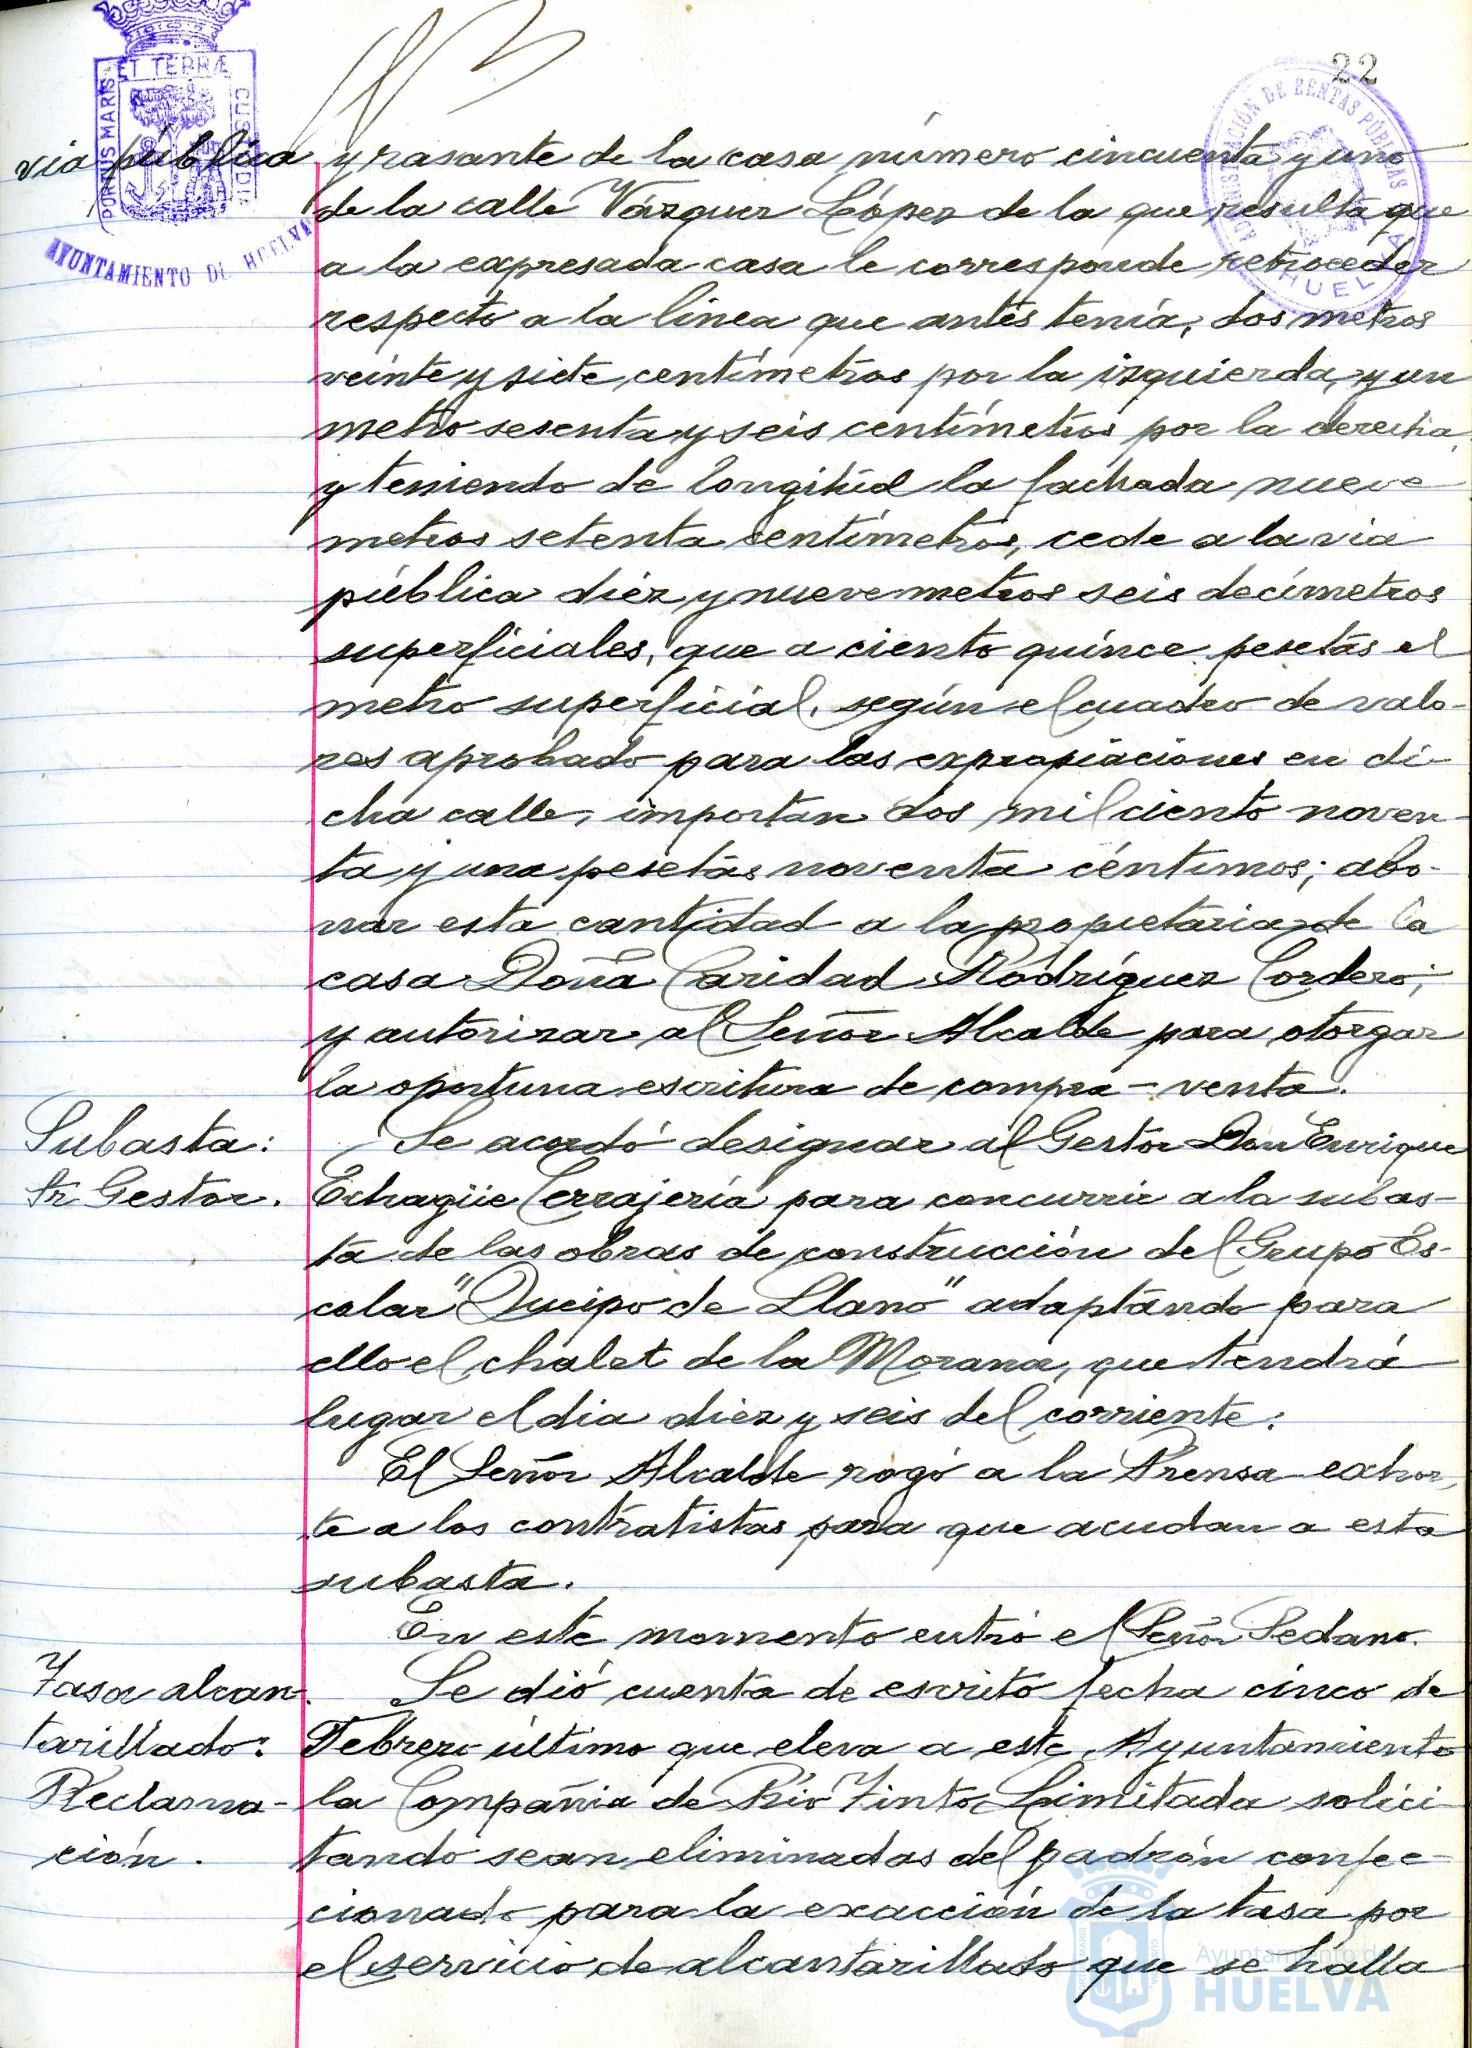 22
PORTUS MARIS ET TERRÆ CUSTODIA
AYUNTAMIENTO DE HUELVA
ADMINISTRACIÓN DE RENTAS PÚBLICAS
HUELVA
via pública y rasante de la casa número cincuenta y uno
de la calle Vázquez López de la que resulta que
a la expresada casa le corresponde retroceder
respecto a la línea que antes tenía, dos metros
veinte y siete centímetros por la izquierda, y un
metro sesenta y seis centímetros por la derecha,
y teniendo de longitud la fachada nueve
metros setenta centímetros, cede a la via
pública diéz y nueve metros seis decímetros
superficiales, que a ciento quince pesetas el
metro superficial, según el cuadro de valo-
res aprobado para las expropiaciones en di-
cha calle, importan dos mil ciento noven-
ta y una pesetas noventa céntimos; abo-
nar esta cantidad a la propietaria de la
casa Doña Caridad Rodríguez Cordero;
y autorizar al Señor Alcalde para otorgar
la oportuna escritura de compra-venta.
Subasta:
Sr Gestor.
Se acordó designar al Gestor Don Enrique
Echagüe Cerrajería para concurrir a la subas-
ta de las obras de construcción del Grupo Es-
colar "Queipo de Llano" adaptando para
ello el chalet de la Morana, que tendrá
lugar el dia diéz y seis del corriente.
El Señor Alcalde rogó a la Prensa exhor-
te a los contratistas para que acudan a esta
subasta.
En este momento entró el Señor Sedano.
Tasa alcan-
tarillado:
Reclama-
ción.
Se dió cuenta de escrito fecha cinco de
Febrero último que eleva a este Ayuntamiento
la Compañia de Rio Tinto Limitada solici-
tando sean eliminadas del padrón confec-
cionado para la exacción de la tasa por
el servicio de alcantarillado que se halla
Ayuntamiento de
HUELVA